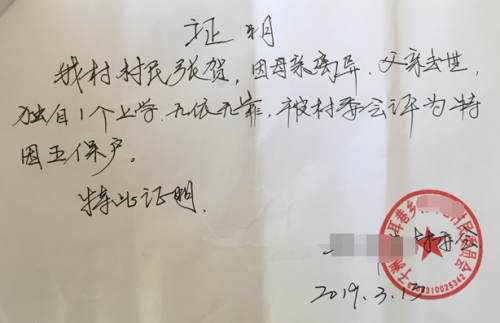 证明
我村村民张贺,因母亲离异.父亲去世,
独自1个上学.无依无靠,被村委会评为特
困五保户。
特此证明.
村委会
2019.3.13